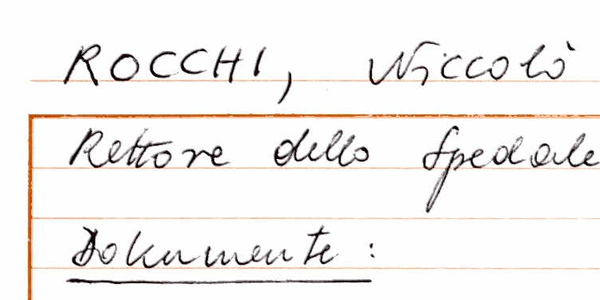 ROCCHI, Niccolò
Rettore dello Spedale
Dokumente: